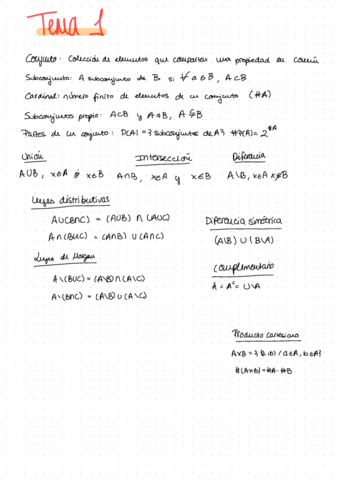 Tema 1
Conjunto: Colección de elementos que comparten una propiedad en común
Subconjunto: A subconjunto de B si ∀ a ∈ B, A⊂B
Cardinal: número finito de elementos de un conjunto (#A)
Subconjunto propio: A⊂B y A≠B, A⊊B
Partes de un conjunto: P(A) = {subconjuntos de A} #P(A) = 2^#A
Unión Intersección Diferencia
A∪B, x∈A ó x∈B A∩B, x∈A y x∈B A\B, x∈A x∉B
Leyes distributivas
A∪(B∩C) = (A∪B) ∩ (A∪C)
A∩(B∪C) = (A∩B) ∪ (A∩C)
Diferencia simétrica
(A\B) ∪ (B\A)
Leyes de Morgan
A\(B∪C) = (A\B) ∩ (A\C)
A\(B∩C) = (A\B) ∪ (A\C)
Complementario
Ā = Aᶜ = U\A
Producto cartesiano
A×B = {(a,b) / a∈A, b∈A}
#(A×B) = #A·#B